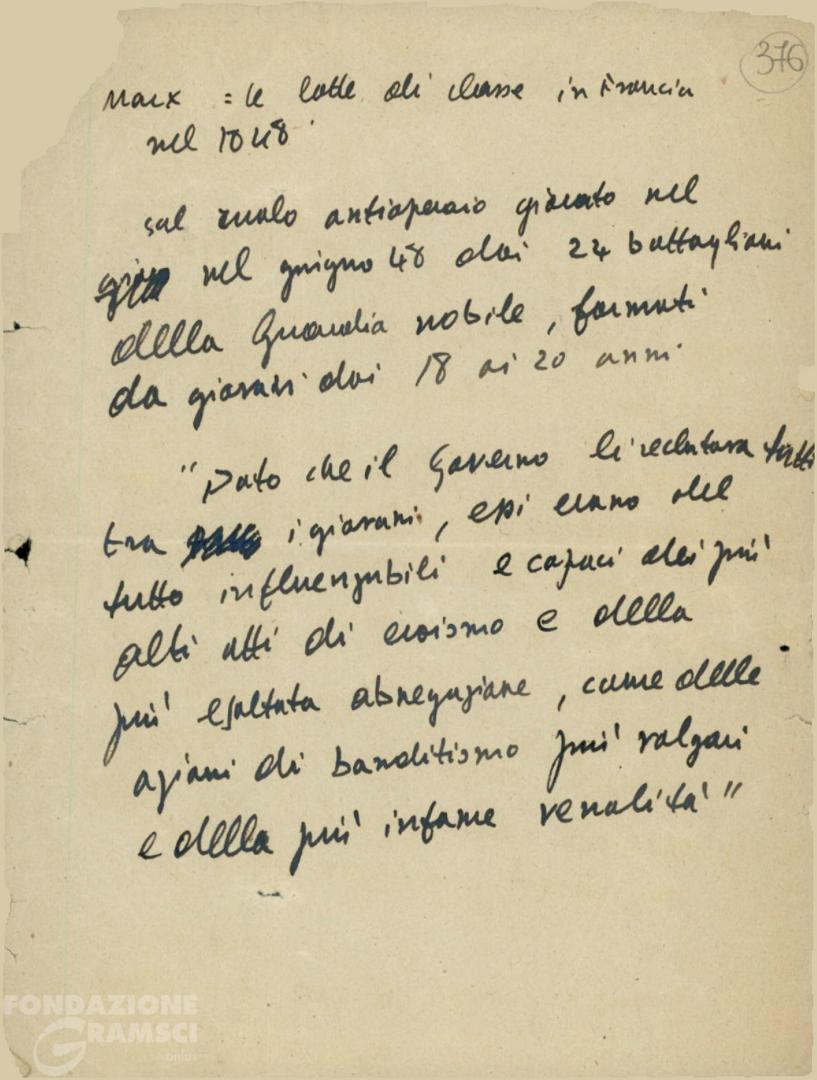 376
Marx = le lotte di classe in Francia
nel 1848
sul ruolo antioperaio giocato nel
nel giugno 48 dai 24 battaglioni
della Guardia nobile, formati
da giovani dai 18 ai 20 anni
"Dato che il Governo li reclutava tutti
tra i giovani, essi erano del
tutto influenzabili e capaci dei più
alti atti di eroismo e della
più esaltata abnegazione, come delle
azioni di banditismo più volgari
e della più infame venalità"
FONDAZIONE
GRAMSCI
onlus